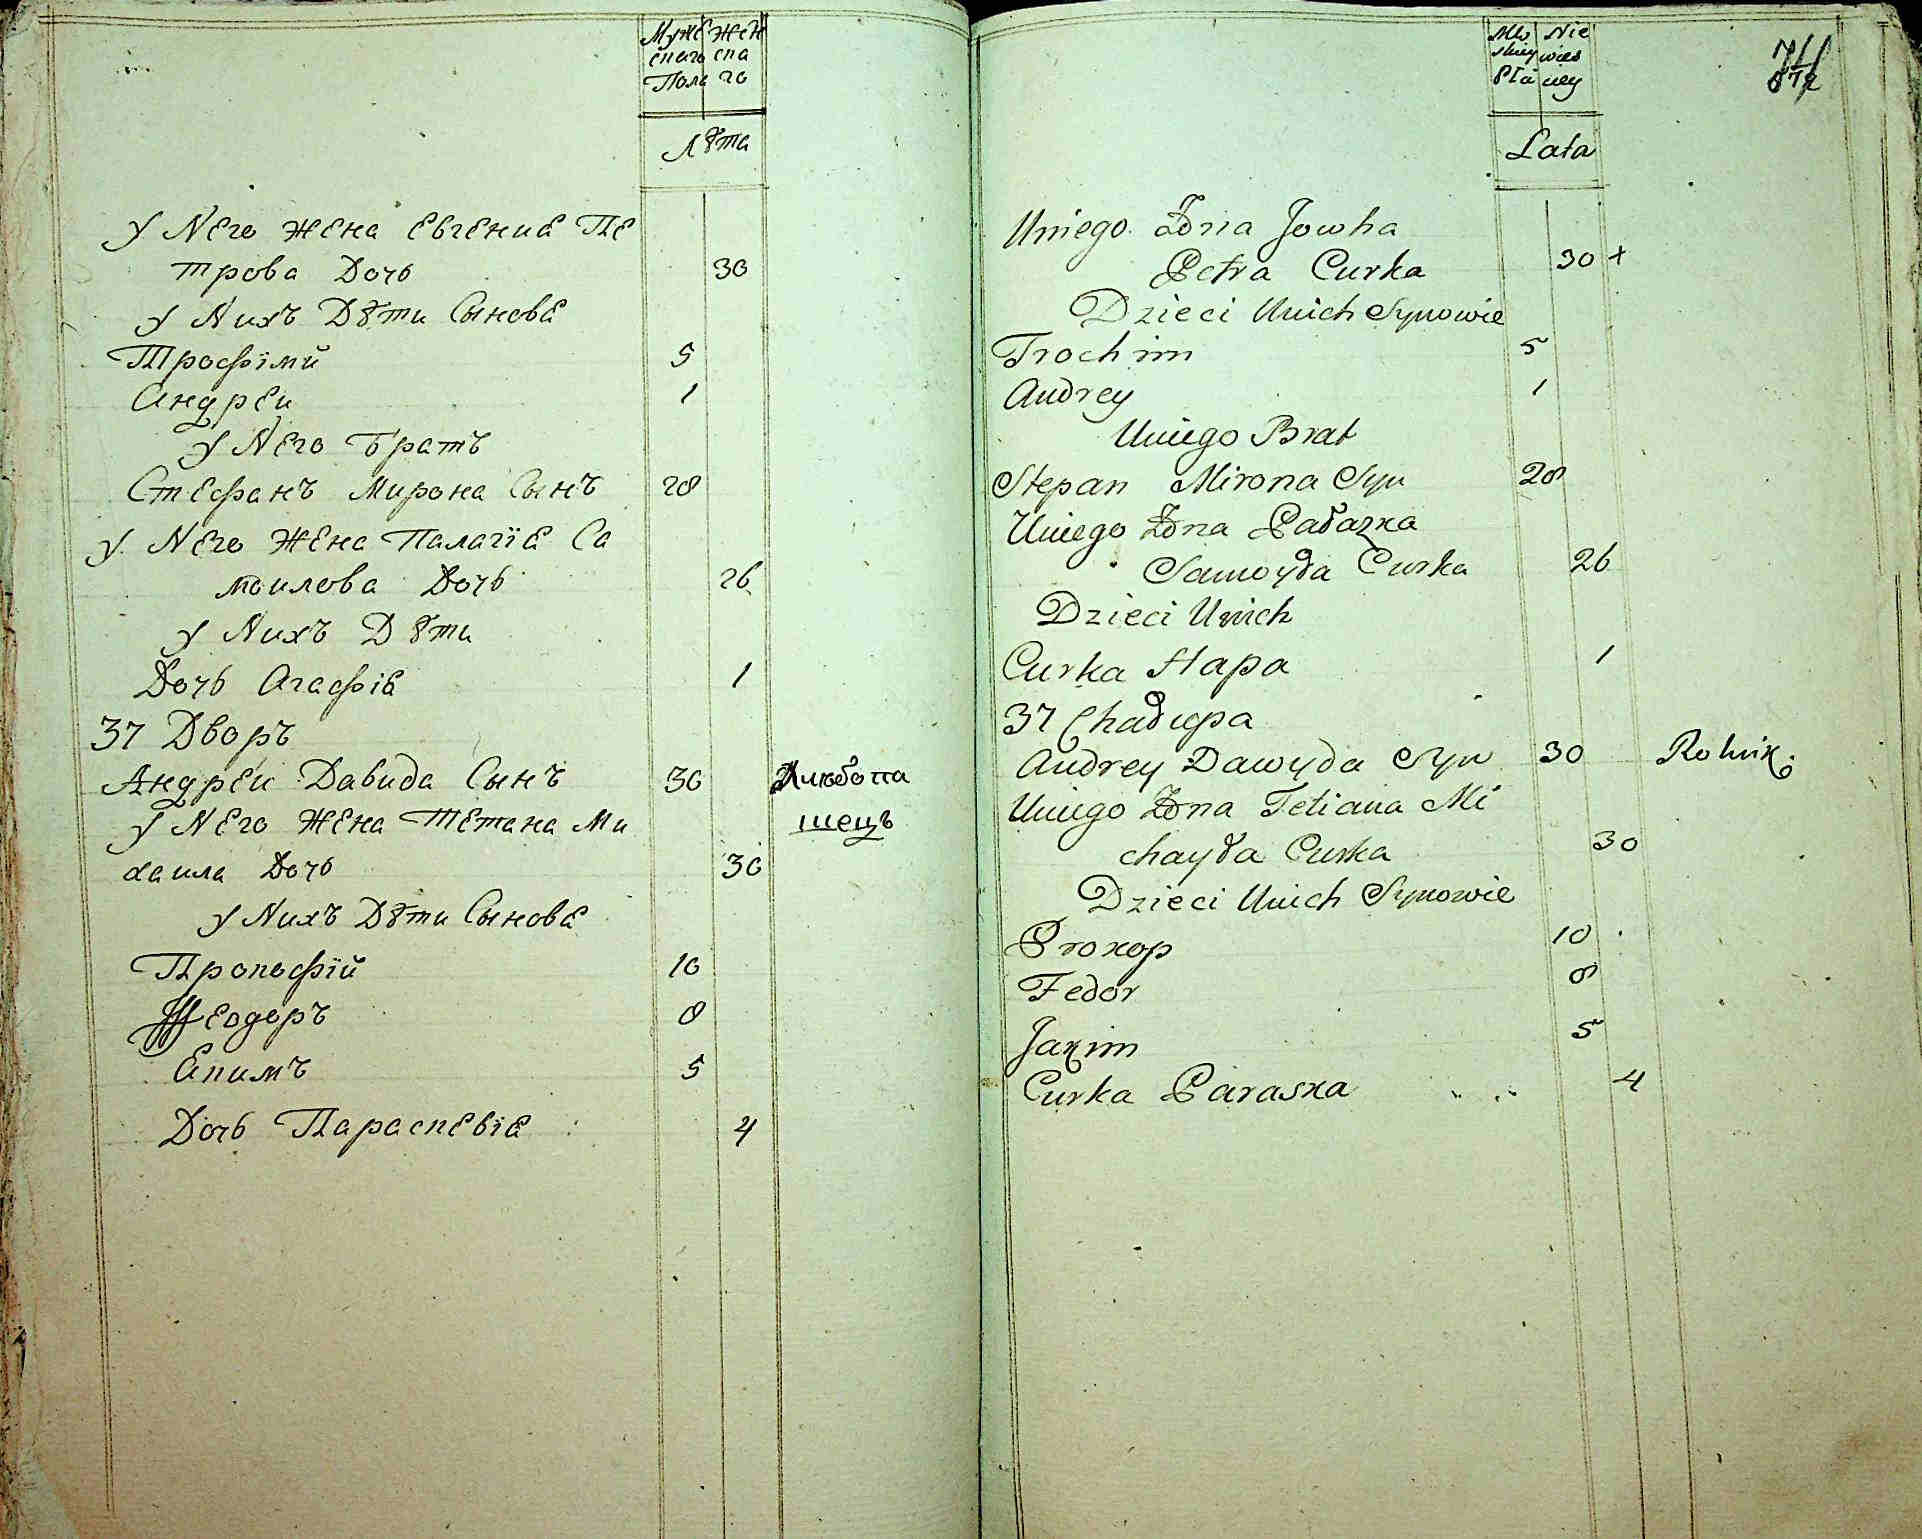 Муже Жен
скаго ска
Пола го
Лѣта
У Него жена Евгениа Пе
трова Дочь 30
У Нихъ Дѣти Сынове
Трофїмй 5
Андреи 1
У Него Братъ
Стефанъ Мирона Сынъ 28
У Него жена Палагїа Са
моилова Дочь 26
У Нихъ Дѣти
Дочь Агафїа 1
37 Дворъ
Андреи Давида Сынъ 30 Хлѣбопа
У Него Жена Тетана Ми шецъ
хаила Дочь 30
У Нихъ Дѣти Сынове
Прокофїй 10
Ѳеодоръ 8
Екимъ 5
Дочь Параскевїа 4
Męs Nie
skiey wies
Płci ciey
Lata
Uniego Żona Jowha
Petra Curka 30 +
Dzieci Unich Synowie
Trochim 5
Andrey 1
Uniego Brat
Stepan Mirona Syn 28
Uniego Żona Pałazka
Samoyła Curka 26
Dzieci Unich
Curka Hapa 1
37 Chałupa
Andrey Dawyda Syn 30 Rolnik.
Uniego Żona Tetiana Mi
chayła Curka 30
Dzieci Unich Synowie
Prokop 10
Fedor 8
Jakim 5
Curka Paraska 4